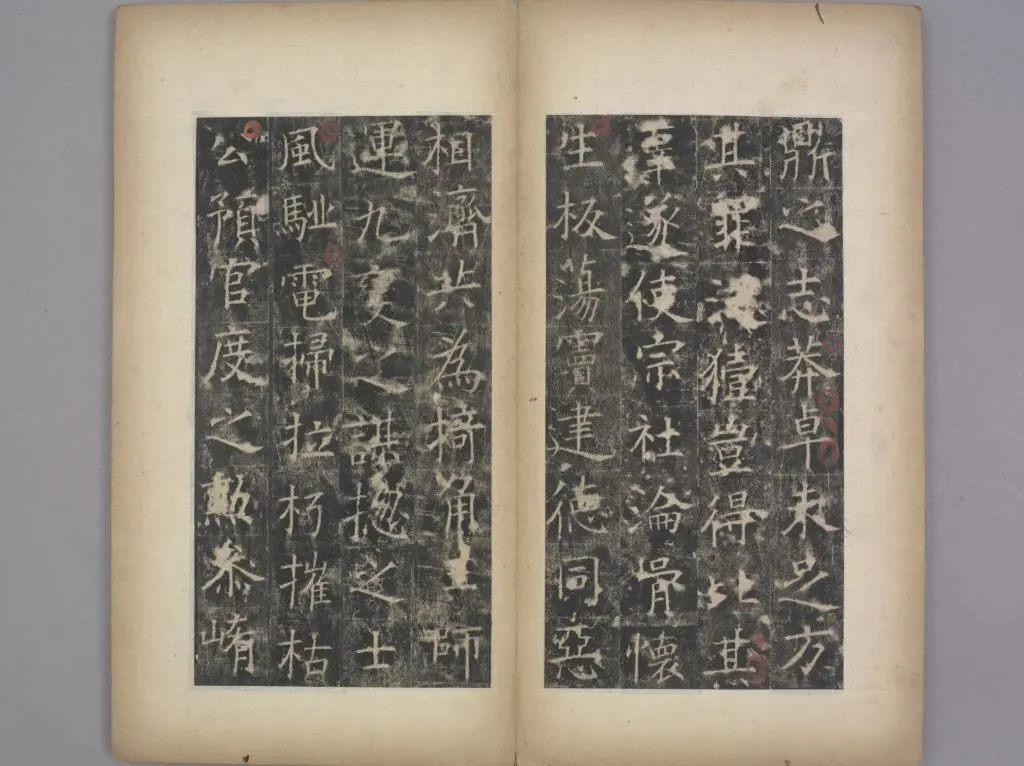 鼎之志莽卓未足方
其罪浞豷豈得比其
辜遂使宗社淪胥懷
生板蕩竇建德同惡
相濟共為掎角王師
運九變之謀揔之士
風馳電掃拉朽摧枯
公預官度之勳參崤